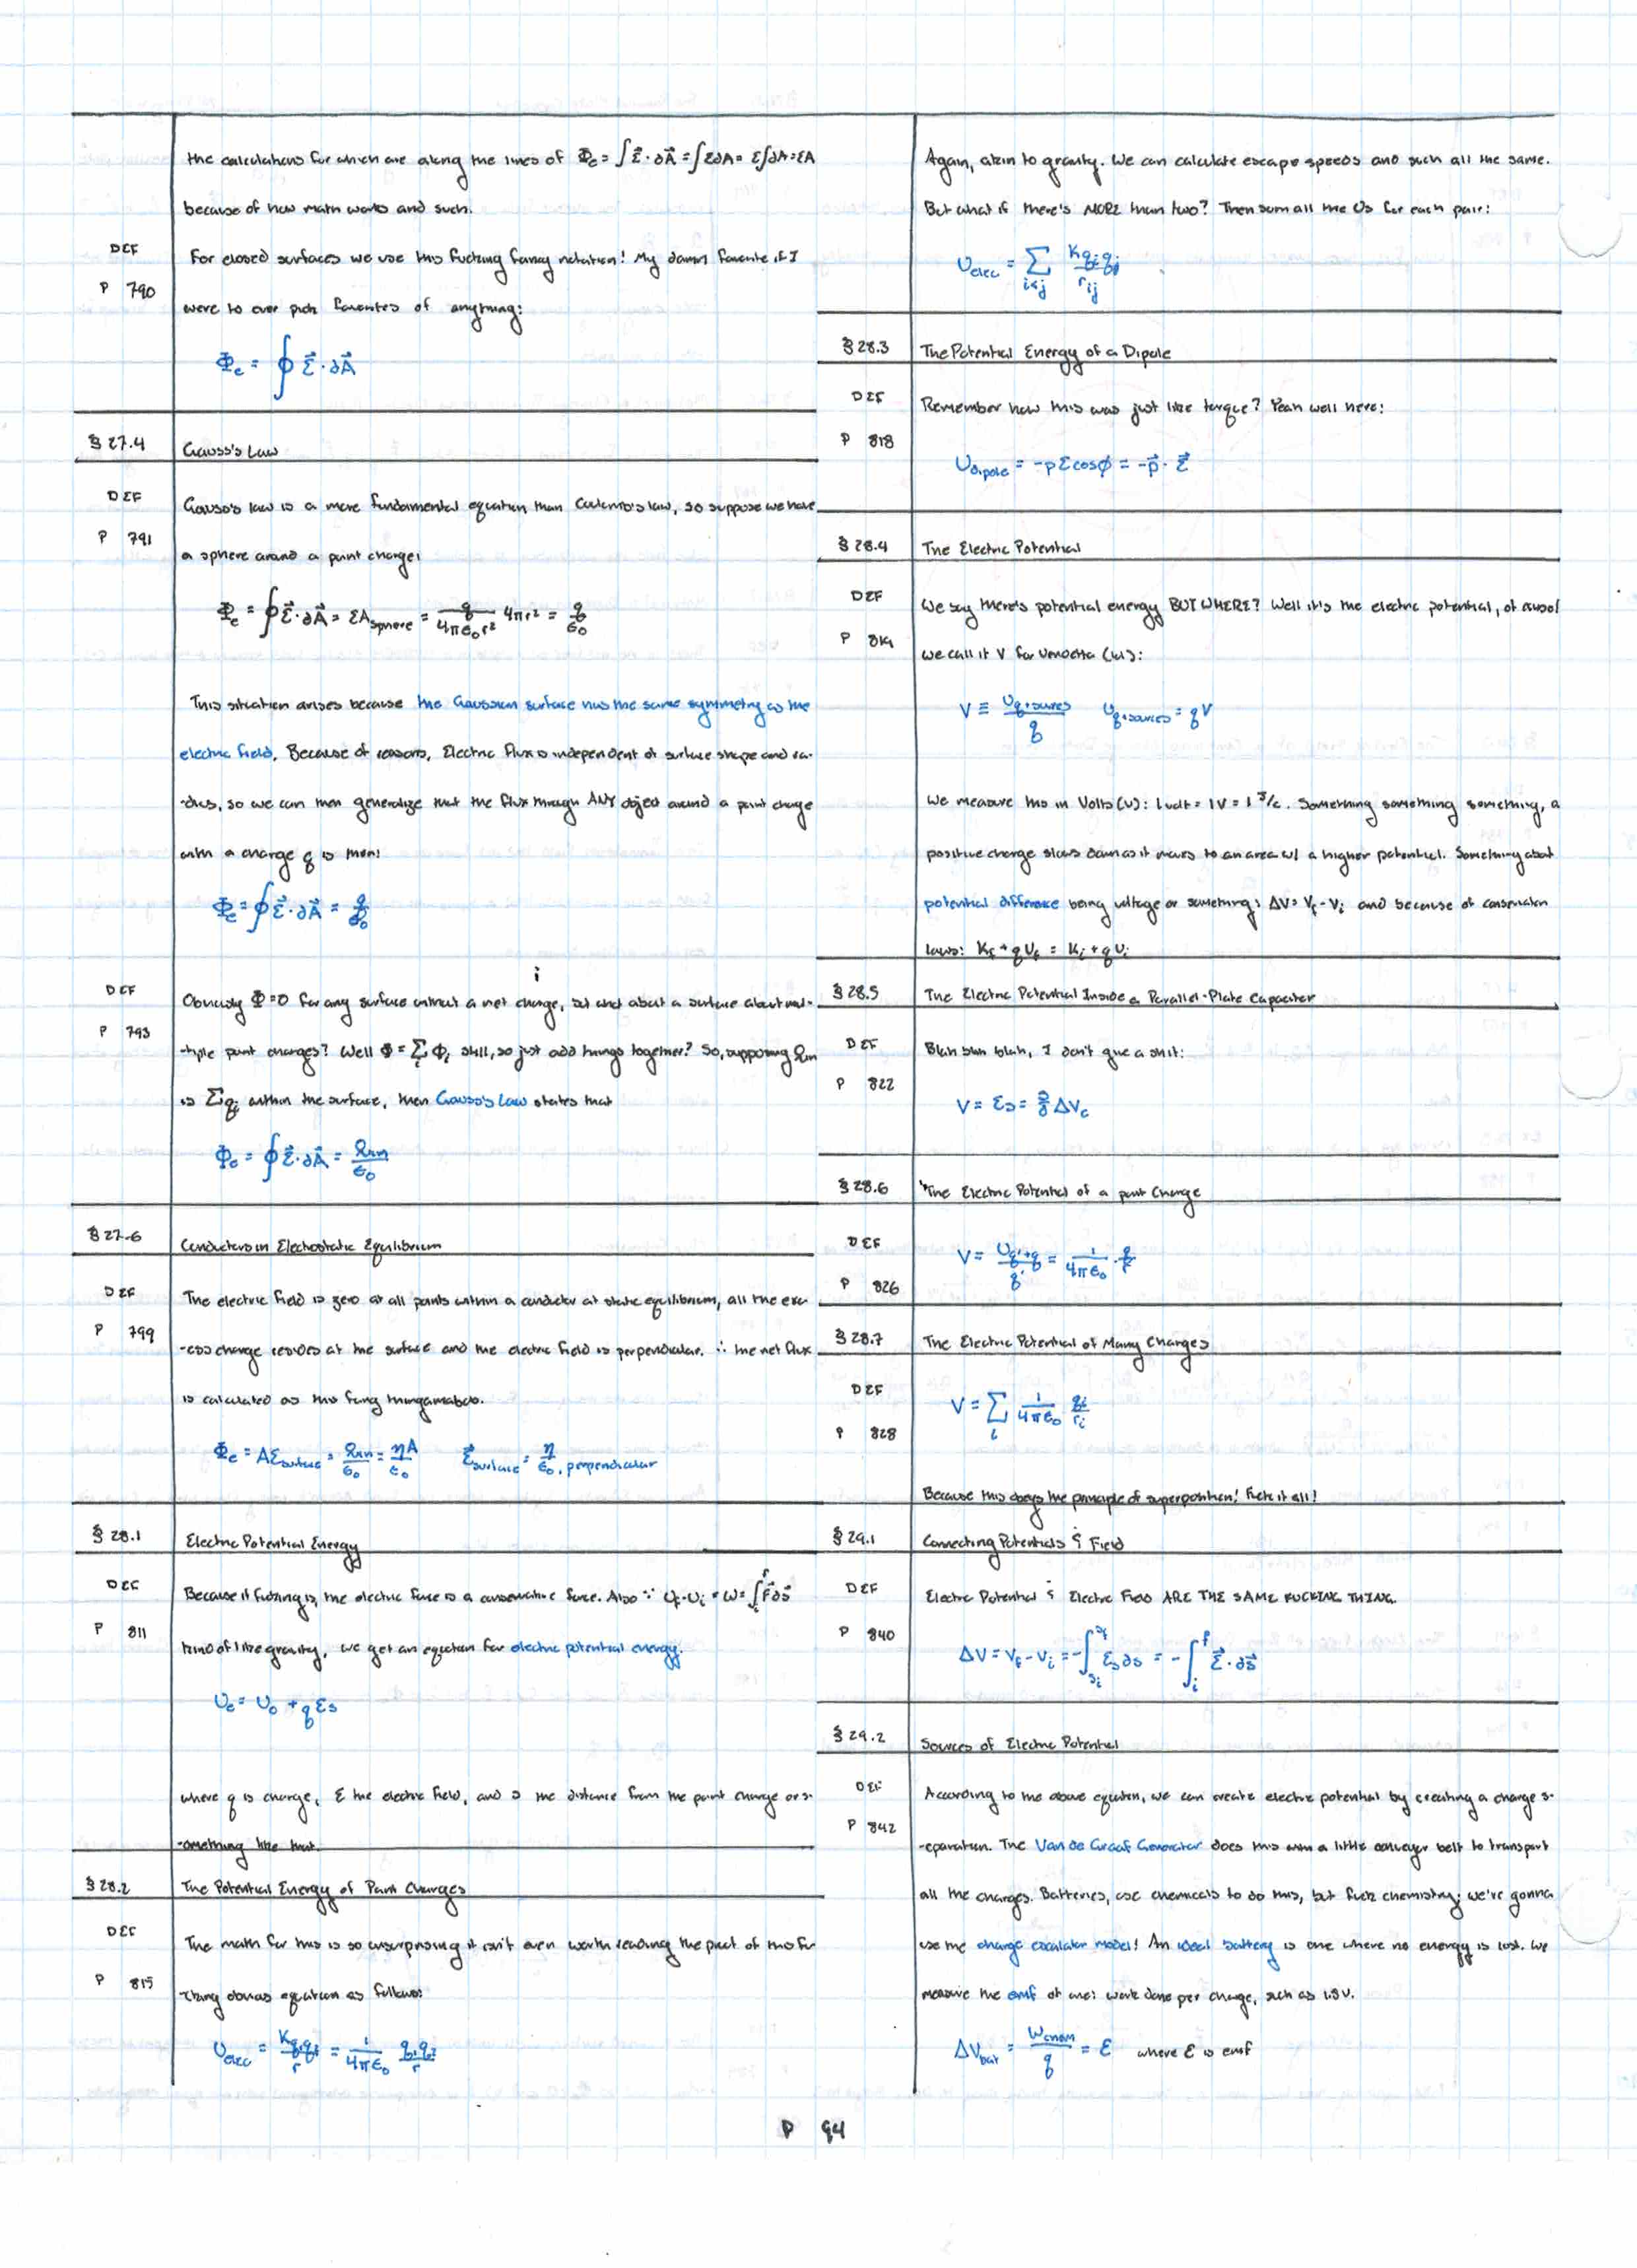 the calculations for which are along the lines of Φe = ∫E⃗·∂A⃗ = ∫E∂A = E∫∂A = EA
because of how math works and such.
DEF
P 790
For closed surfaces we use this fucking fancy notation! My damn favorite if I
were to ever pick favorites of anything:
Φe = ∮E⃗·∂A⃗
§ 27.4 Gauss's Law
DEF
P 791
Gauss's law is a more fundamental equation than Coulomb's law, so suppose we have
a sphere around a point charge:
Φe = ∮E⃗·∂A⃗ = EAsphere = q/4πϵ₀r² 4πr² = q/ϵ₀
This situation arises because the Gaussian surface has the same symmetry as the
electric field. Because of reasons, Electric flux is independent of surface shape and ra-
-dius, so we can then generalize that the flux through ANY object around a point charge
with a charge q is then:
Φe = ∮E⃗·∂A⃗ = q/ϵ₀
DEF
P 793
Obviously Φ=0 for any surface without a net charge, but what about a surface about mul-
-tiple point charges? Well Φ = ∑Φi still, so just add things together? So, supposing Qin
is ∑qi within the surface, then Gauss's Law states that
Φe = ∮E⃗·∂A⃗ = Qin/ϵ₀
§ 27.6 Conductors in Electrostatic Equilibrium
DEF
P 799
The electric field is zero at all points within a conductor at static equilibrium, all the exc-
-ess charge resides at the surface and the electric field is perpendicular. ∴ the net flux
is calculated as this fung thingamabob.
Φe = AEsurface = Qin/ϵ₀ = ηA/ϵ₀ E⃗surface = η/ϵ₀, perpendicular
§ 28.1 Electric Potential Energy
DEF
P 811
Because it fucking is, the electric force is a conservative force. Also ∵ Uf-Ui = W = ∫F⃗∂s⃗
kind of like gravity, we get an equation for electric potential energy.
Ue = U₀ + qEs
where q is charge, E the electric field, and s the distance from the point charge or s-
-omething like that.
§ 28.2 The Potential Energy of Point Charges
DEF
P 815
The math for this is so unsurprising it isn't even worth reading the pact of this fu-
-cking obvious equation as follows:
Uelec = Kqiqj/r = 1/4πϵ₀ qiqj/r
Again, akin to gravity. We can calculate escape speeds and such all the same.
But what if there's MORE than two? Then sum all the Us for each pair:
Uelec = ∑i<j Kqiqj/rij
§ 28.3 The Potential Energy of a Dipole
DEF
P 818
Remember how this was just like torque? Yeah well here:
Udipole = -pEcosϕ = -p⃗·E⃗
§ 28.4 The Electric Potential
DEF
P 819
We say there's potential energy BUT WHERE? Well it's the electric potential, of course!
We call it V for Vendetta (lol):
V ≡ Uq+sources/q Uq+sources = qV
We measure this in Volts (V): 1 volt = 1V = 1 J/C. Something something something, a
positive charge slows down as it moves to an area w/ a higher potential. Something about
potential difference being voltage or something: ΔV = Vf - Vi and because of conservation
laws: Kf + qVf = Ki + qVi
§ 28.5 The Electric Potential Inside a Parallel-Plate Capacitor
DEF
P 822
Blah blah blah, I don't give a shit:
V = Es = s/d ΔVc
§ 28.6 The Electric Potential of a point Charge
DEF
P 826
V = Uq'+q/q' = 1/4πϵ₀ · q/r
§ 28.7 The Electric Potential of Many Charges
DEF
P 828
V = ∑i 1/4πϵ₀ qi/ri
Because this obeys the principle of superposition! Fuck it all!
§ 29.1 Connecting Potentials & Field
DEF
P 840
Electric Potential & Electric Field ARE THE SAME FUCKING THING.
ΔV = Vf - Vi = -∫Es∂s = -∫E⃗·∂s⃗
§ 29.2 Sources of Electric Potential
DEF
P 842
According to the above equation, we can create electric potential by creating a charge s-
-eparation. The Van de Graaf Generator does this with a little conveyer belt to transport
all the charges. Batteries, use chemicals to do this, but fuck chemistry; we're gonna
use the charge escalator model! An ideal battery is one where no energy is lost. We
measure the emf of one: work done per charge, such as 1.5V.
ΔVbat = Wchem/q = ℰ where ℰ is emf
P 94